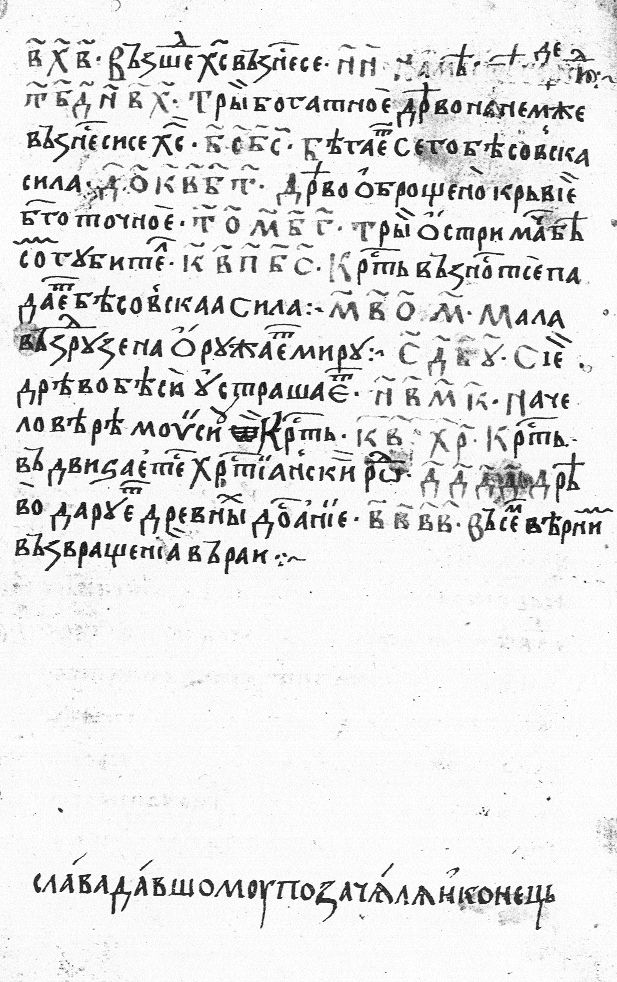 в҃ х҃ в҃ · Възшеⷧ х҃с възне́се · н҃ н҃ ·
т҃ б҃ д҃ н҃ в҃ х҃ · Трыи богатное дрⷡ҇во на немже
възне́сисе х҃с · б҃ с҃ б҃ с҃ · Бѣгаеⷮ сего бѣсо́вска
сила · д҃ о҃ к҃ н҃ б҃ т҃ · Дрⷡ҇во о́брошено крьвїе
б҃готочное · т҃ о҃ м҃ б҃ г҃ · Трыи о́стри мачь бѣ
согубителⷧ · к҃ в҃ п҃ б҃ с҃ · Крⷭ҇ть възно́тсе па
даеⷮ бѣсо́вскаа сила :~ м҃ в҃ о҃ м҃ · Мала
възⷧрузена о́ружаеⷮ миру :~ с҃ д҃ б҃ у҃ · Сїе
дрѣво бѣси у́страшаеⷮ · н҃ в҃ м҃ к҃ · Наче
ловѣрѣ моѵси Крⷭ҇ть · к҃ в҃ х҃ р҃ · Крⷭ҇ть
въдвиѕаетсе хрⷭ҇тїански роⷣ · д҃ д҃ д҃ д҃ дрѣ
во даруеⷮ древныⷯ до́анїе · в҃ в҃ в҃ в҃ · Въсеⷨ вѣрни
възвращенїа въ раи :~
сла́ва да́вшомоу по зача́ля и конецъ